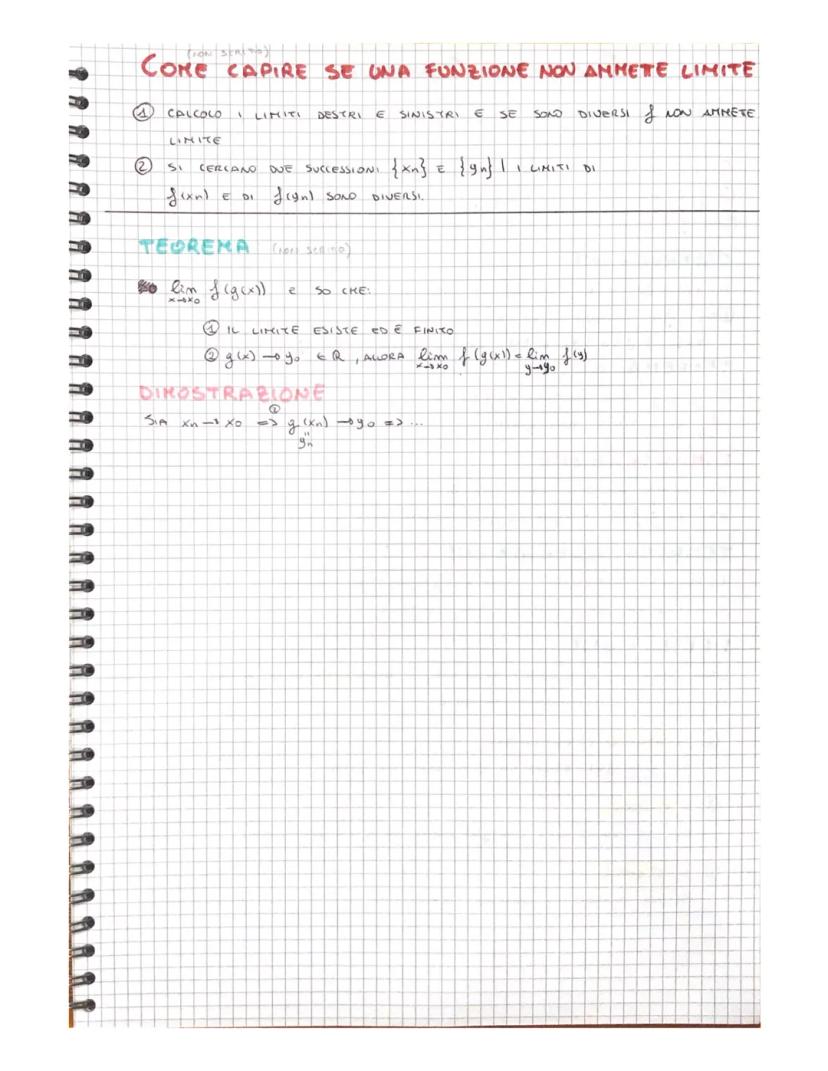 (NON SCRITTO)
COME CAPIRE SE UNA FUNZIONE NON AMMETE LIMITE
① CALCOLO I LIMITI DESTRI E SINISTRI E SE SONO DIVERSI f NON AMMETE
LIMITE
② SI CERCANO DUE SUCCESSIONI {xn} E {yn} | I LIMITI DI
f(xn) E DI f(yn) SONO DIVERSI.
TEOREMA (NON SCRITTO)
lim x→x0 f(g(x)) E SO CHE:
① IL LIMITE ESISTE ED È FINITO
② g(x) → y0 ∈ R, ALLORA lim x→x0 f(g(x)) = lim y→y0 f(y)
DIMOSTRAZIONE
SIA xn → x0 ②=> g(xn) → y0 => ...
"
yn